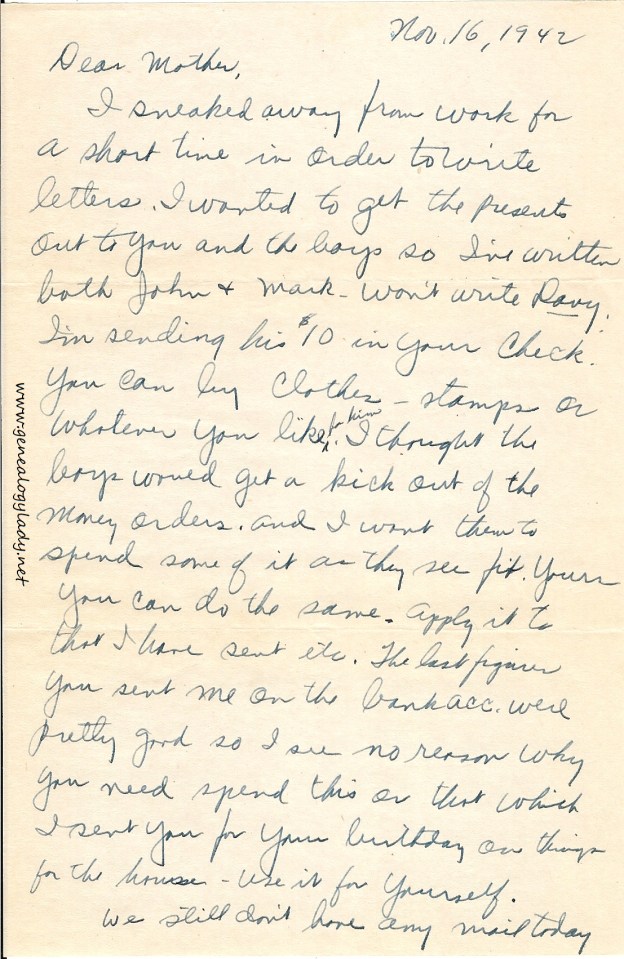 Nov. 16, 1942
Dear Mother,
I sneaked away from work for
a short time in order to write
letters. I wanted to get the presents
out to you and the boys so I've written
both John + Mark - won't write Davy.
I'm sending his $10 in your check.
You can buy clothes - stamps or
whatever you like for him. I thought the
boys would get a kick out of the
money orders. and I want them to
spend some of it as they see fit. Yours
you can do the same - apply it to
that I have sent etc. The last figures
you sent me on the bank acc. were
pretty good so I see no reason why
you need spend this or that which
I sent you for your birthday on things
for the house - use it for yourself.
We still don't have any mail today
www.genealogylady.net